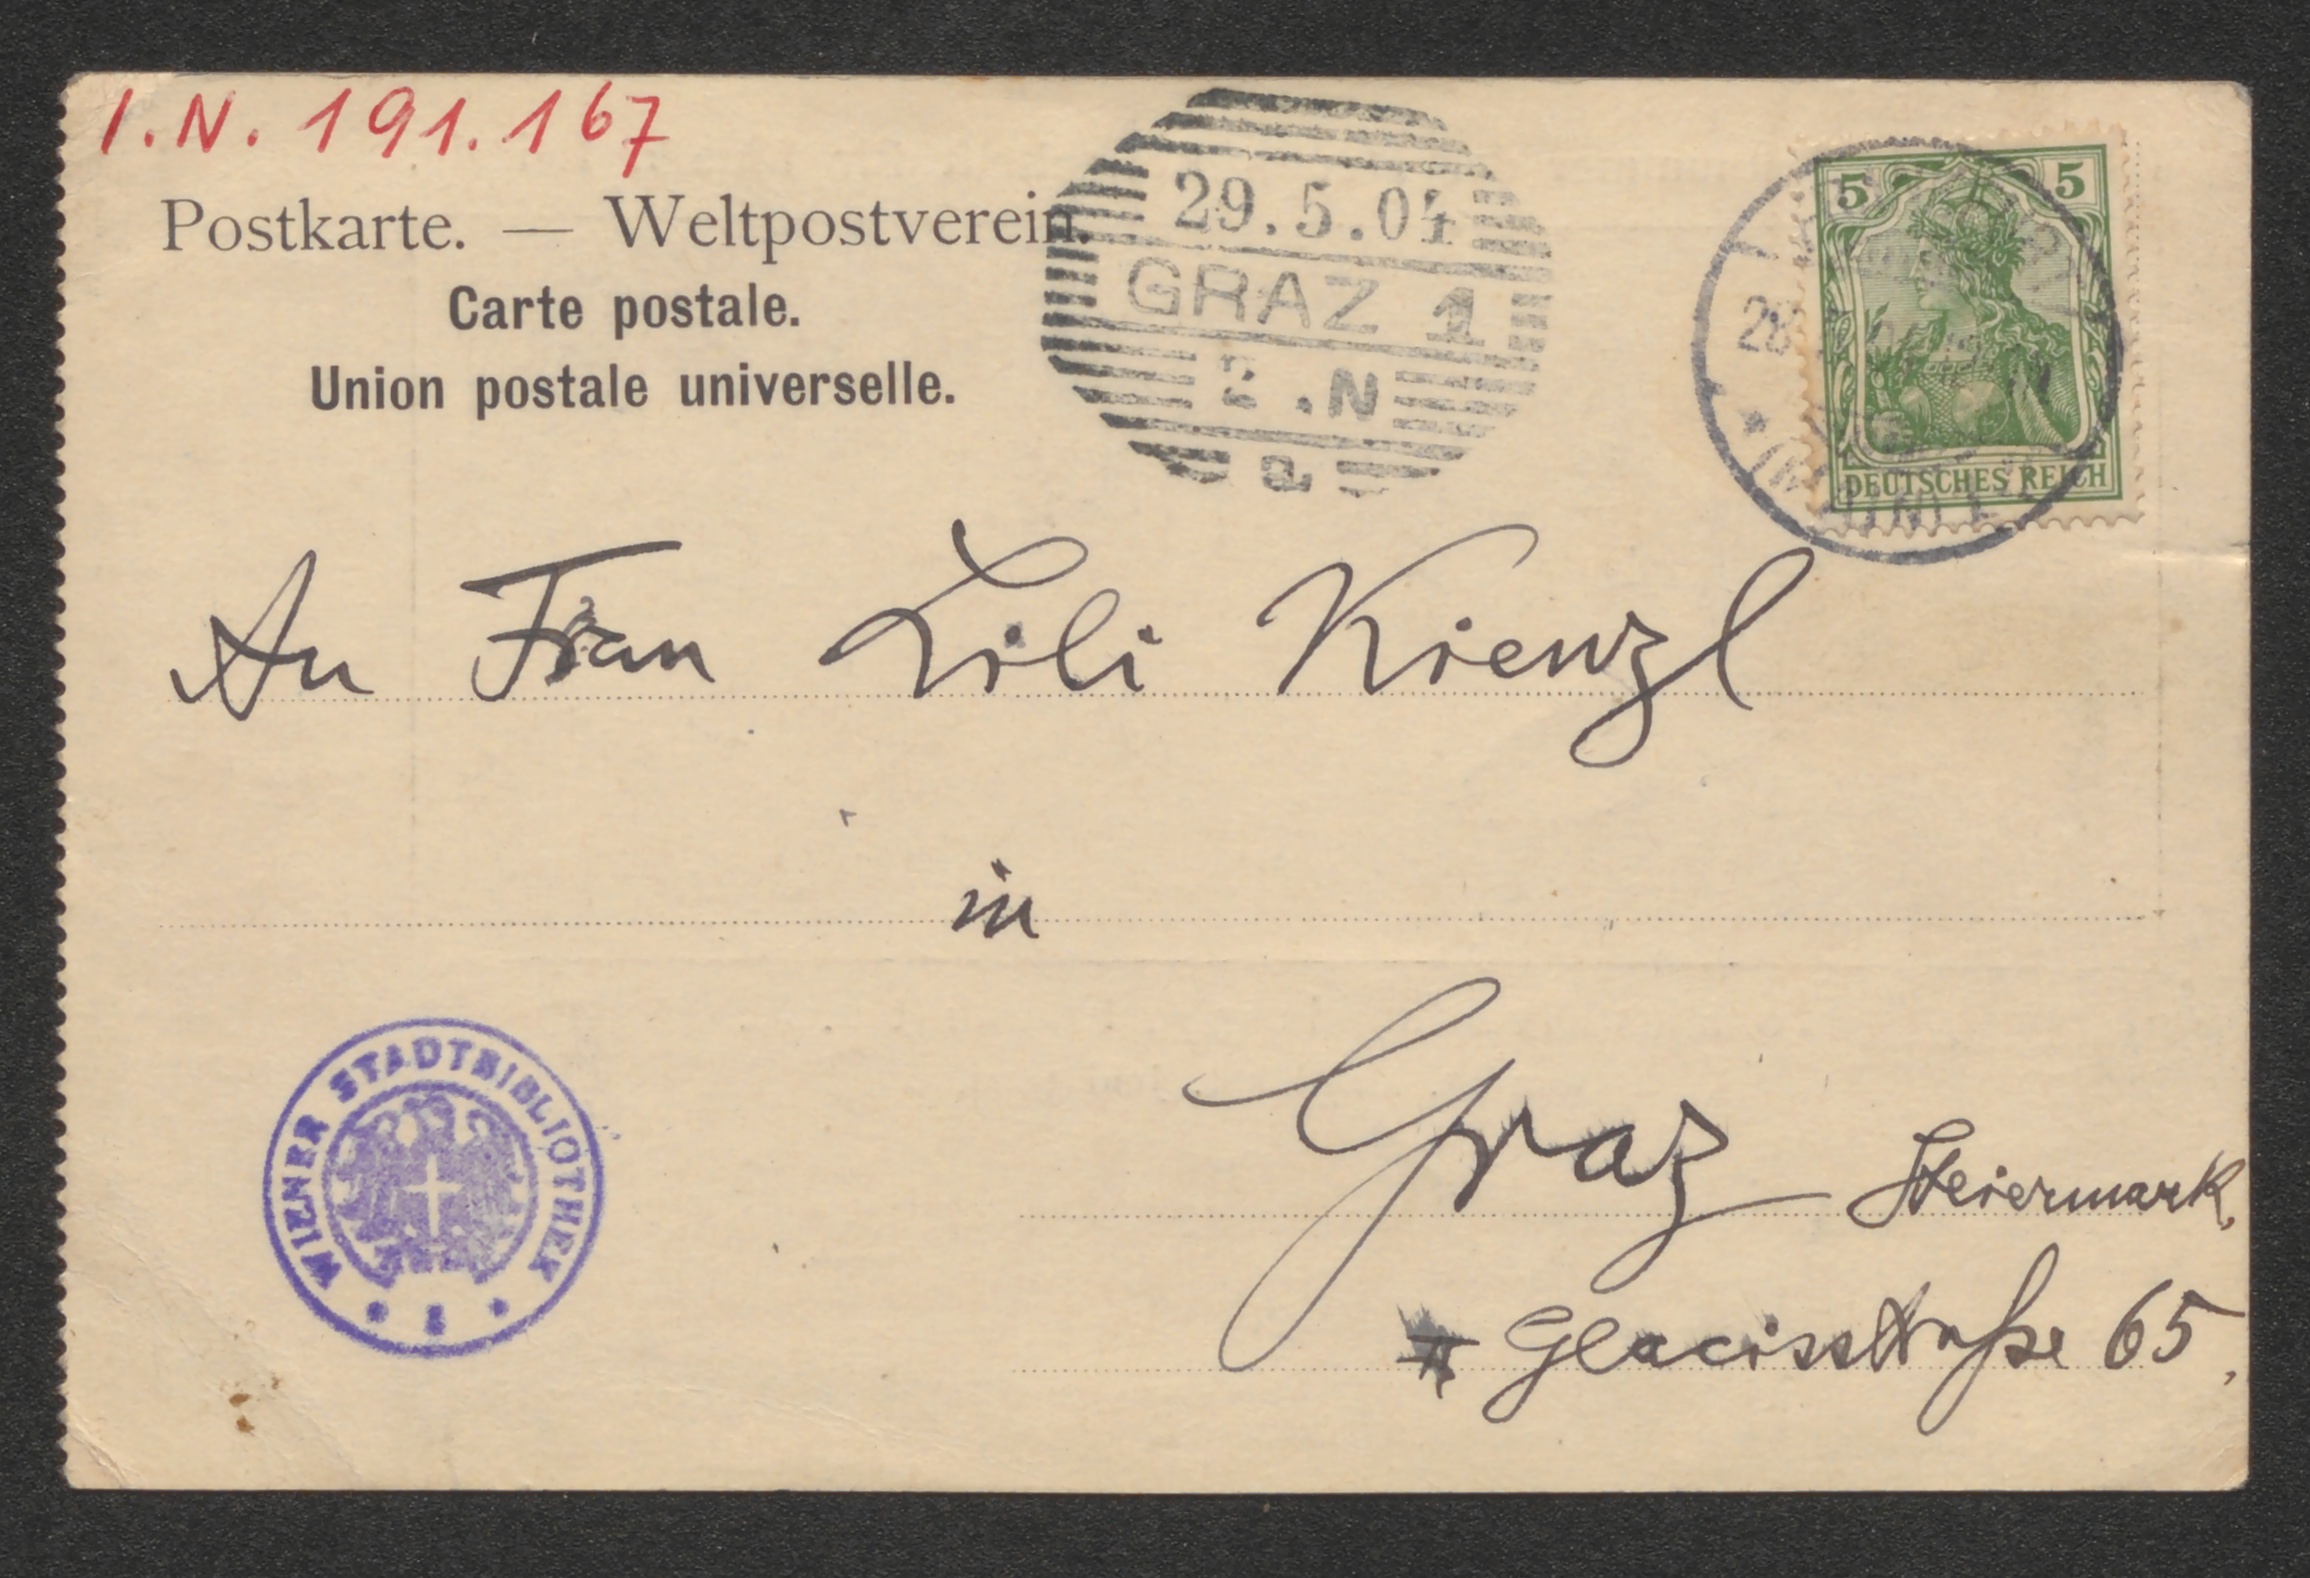 I.N. 191.167
Postkarte. — Weltpostverein.
Carte postale.
Union postale universelle.
29.5.04
GRAZ 1
2 .N
a
5 5
DEUTSCHES REICH
28
(MAIN)
An Frau Lili Kienzl
in
Graz Steiermark,
Glacisstraße 65,
WIENER STADTBIBLIOTHEK